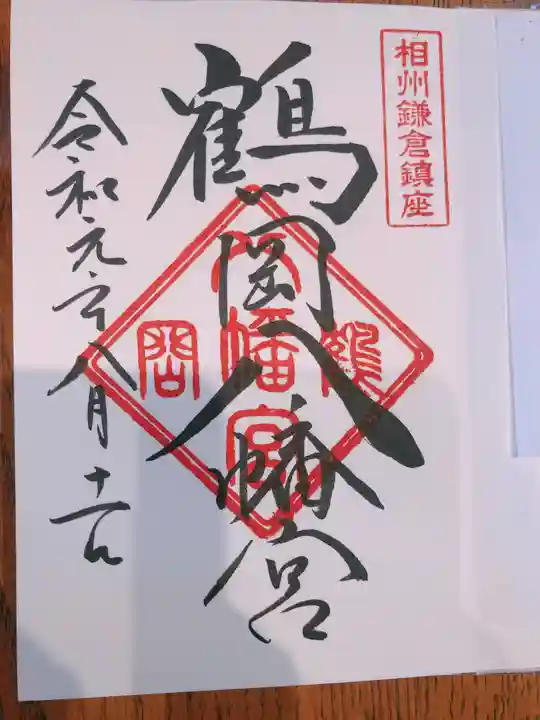 相州鎌倉鎮座
鶴岡八幡宮
鶴
八幡宮
岡
令和元年八月十